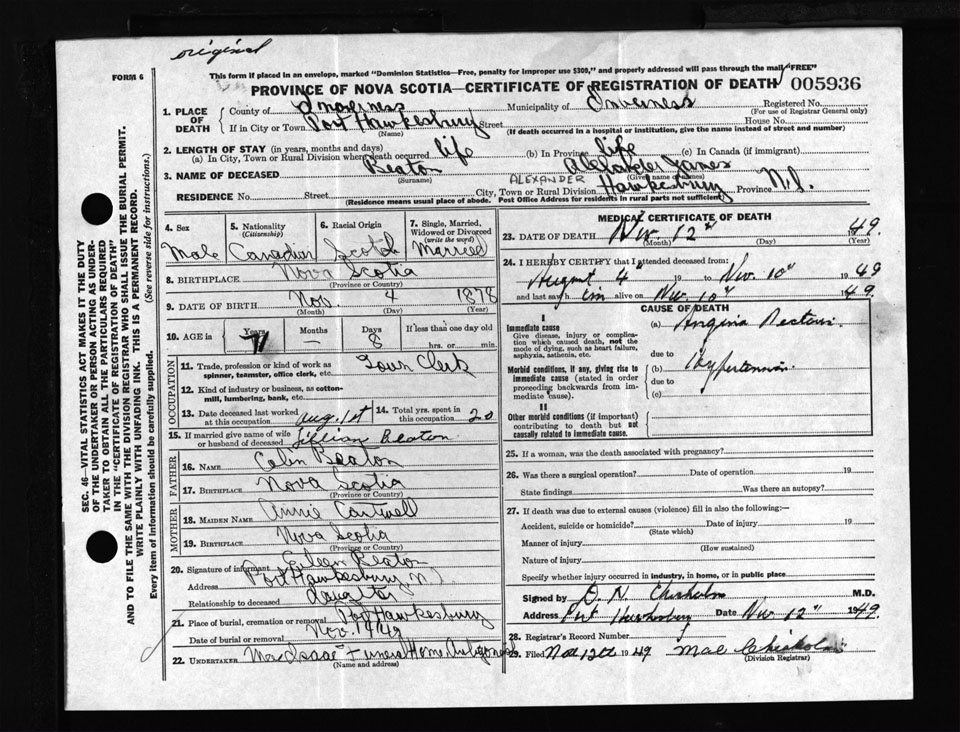 original
FORM 6
This form if placed in an envelope, marked "Dominion Statistics—Free, penalty for improper use $300," and properly addressed will pass through the mail "FREE"
PROVINCE OF NOVA SCOTIA—CERTIFICATE OF REGISTRATION OF DEATH 005936
1. PLACE OF DEATH County of Inverness Municipality of Inverness Registered No. (For use of Registrar General only)
If in City or Town Port Hawkesbury Street House No.
(Name) (If death occurred in a hospital or institution, give the name instead of street and number)
2. LENGTH OF STAY (in years, months and days)
(a) In City, Town or Rural Division where death occurred life (b) In Province life (c) In Canada (if immigrant)
3. NAME OF DECEASED Beaton ALEXANDER Alexander James
(Surname) (Given Names)
RESIDENCE No. Street City, Town or Rural Division Hawkesbury Province N.S.
(Residence means usual place of abode. Post Office Address for residents in rural parts not sufficient)
4. Sex 5. Nationality (Citizenship) 6. Racial Origin 7. Single, Married, Widowed or Divorced (write the word)
Male Canadian Scotch Married
8. BIRTHPLACE Nova Scotia
(Province or Country)
9. DATE OF BIRTH Nov. 4 1878
(Month) (Day) (Year)
10. AGE in Years Months Days If less than one day old
71 — 8 hrs. or min.
OCCUPATION
11. Trade, profession or kind of work as spinner, teamster, office clerk, etc. Town Clerk
12. Kind of industry or business, as cotton-mill, lumbering, bank, etc.
13. Date deceased last worked at this occupation Aug. 1st 14. Total yrs. spent in this occupation 20
15. If married give name of wife or husband of deceased Beaton
FATHER
16. NAME Colin Beaton
17. BIRTHPLACE Nova Scotia
(Province or Country)
MOTHER
18. MAIDEN NAME Annie Cantwell
19. BIRTHPLACE Nova Scotia
(Province or Country)
20. Signature of informant Eileen Beaton
Address Port Hawkesbury N
Relationship to deceased daughter
21. Place of burial, cremation or removal Port Hawkesbury
Date of burial or removal Nov. 14/49
22. UNDERTAKER Funeral Home Antigonish
(Name and address)
MEDICAL CERTIFICATE OF DEATH
23. DATE OF DEATH Nov 12" 49.
(Month) (Day) (Year)
24. I HEREBY CERTIFY that I attended deceased from:
August 4" 19 to Nov. 10" 1949
and last saw h im alive on Nov. 10" 49.
CAUSE OF DEATH
I
Immediate cause (a) Angina Pectoris.
Give disease, injury or complication which caused death, not the mode of dying, such as heart failure, asphyxia, asthenia, etc.
due to
Morbid conditions, if any, giving rise to immediate cause (stated in order proceeding backwards from immediate cause). (b) Hypertension.
due to
(c)
II
Other morbid conditions (if important) contributing to death but not causally related to immediate cause.
25. If a woman, was the death associated with pregnancy?
26. Was there a surgical operation? Date of operation 19
State findings Was there an autopsy?
27. If death was due to external causes (violence) fill in also the following:—
Accident, suicide or homicide? Date of injury 19
(State which)
Manner of injury
(How sustained)
Nature of injury
Specify whether injury occurred in industry, in home, or in public place
Signed by D. N. Chisholm M.D.
Address Port Hawkesbury Date Nov 12" 1949.
28. Registrar's Record Number
29. Filed Nov 12th 1949 Mae Chisholm
(Division Registrar)
SEC. 46—VITAL STATISTICS ACT MAKES IT THE DUTY
OF THE UNDERTAKER OR PERSON ACTING AS UNDER-
TAKER TO OBTAIN ALL THE PARTICULARS REQUIRED
IN THE "CERTIFICATE OF REGISTRATION OF DEATH"
AND TO FILE THE SAME WITH THE DIVISION REGISTRAR WHO SHALL ISSUE THE BURIAL PERMIT.
WRITE PLAINLY WITH UNFADING INK. THIS IS A PERMANENT RECORD.
Every item of information should be carefully supplied. (See reverse side for instructions.)